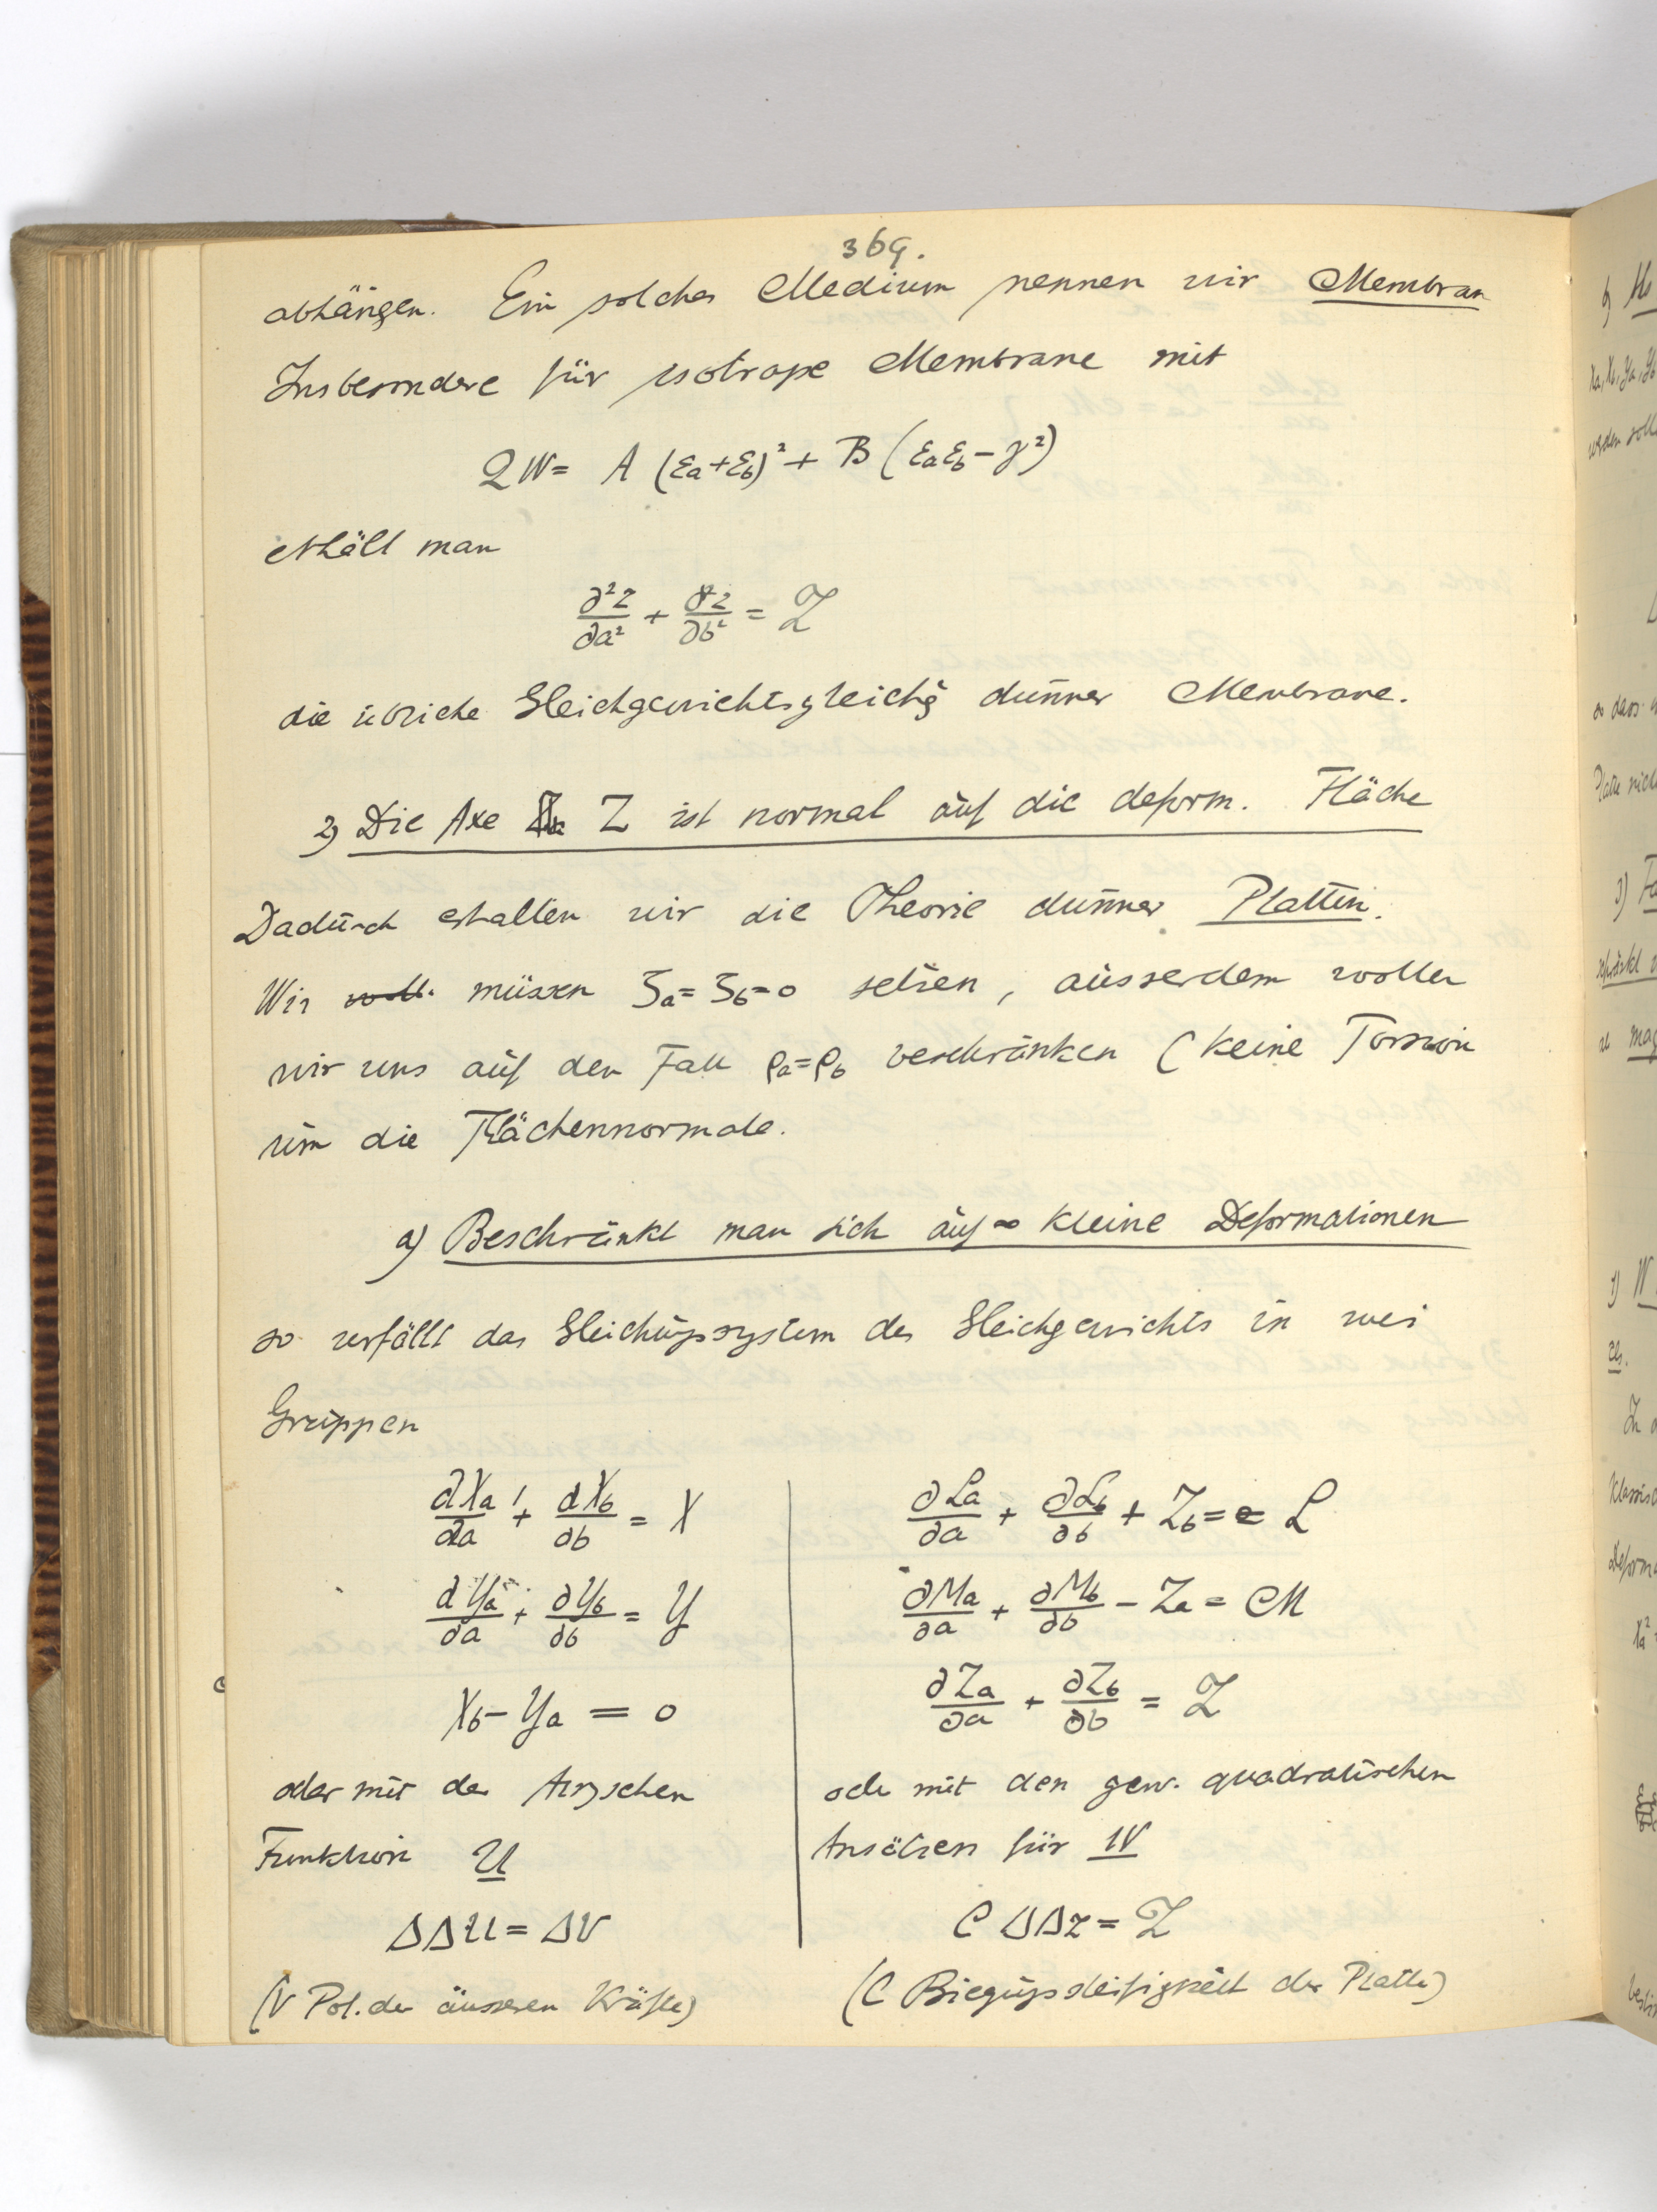 369.
abhängen. Ein solches Medium nennen wir Membran
Insbesondere für isotrope Membrane mit
2W = A (εa+εb)² + B (εaεb − γ²)
erhält man
∂²z/∂a² + ∂²z/∂b² = Z
die übliche Gleichgewichtsgleichg dünner Membrane.
2) Die Axe Z ist normal auf die deform. Fläche
Dadurch erhalten wir die Theorie dünner Platten.
Wir woll. müssen ζa = ζb = 0 setzen, ausserdem wollen
wir uns auf den Fall ρa = ρb beschränken (keine Torsion
um die Flächennormale.
a) Beschränkt man sich auf ∞ kleine Deformationen
so zerfällt das Gleichungssystem des Gleichgewichts in zwei
Gruppen
∂Xa/∂a + ∂Xb/∂b = X
∂Ya/∂a + ∂Yb/∂b = Y
Xb − Ya = 0
oder mit der Airyschen
Funktion U
ΔΔU = ΔV
(V Pot. der äusseren Kräfte)
∂La/∂a + ∂Lb/∂b + Zb = L
∂Ma/∂a + ∂Mb/∂b − Za = M
∂Za/∂a + ∂Zb/∂b = Z
oder mit den gew. quadratischen
Ansätzen für W
C ΔΔz = Z
(C Biegungssteifigkeit der Platte)